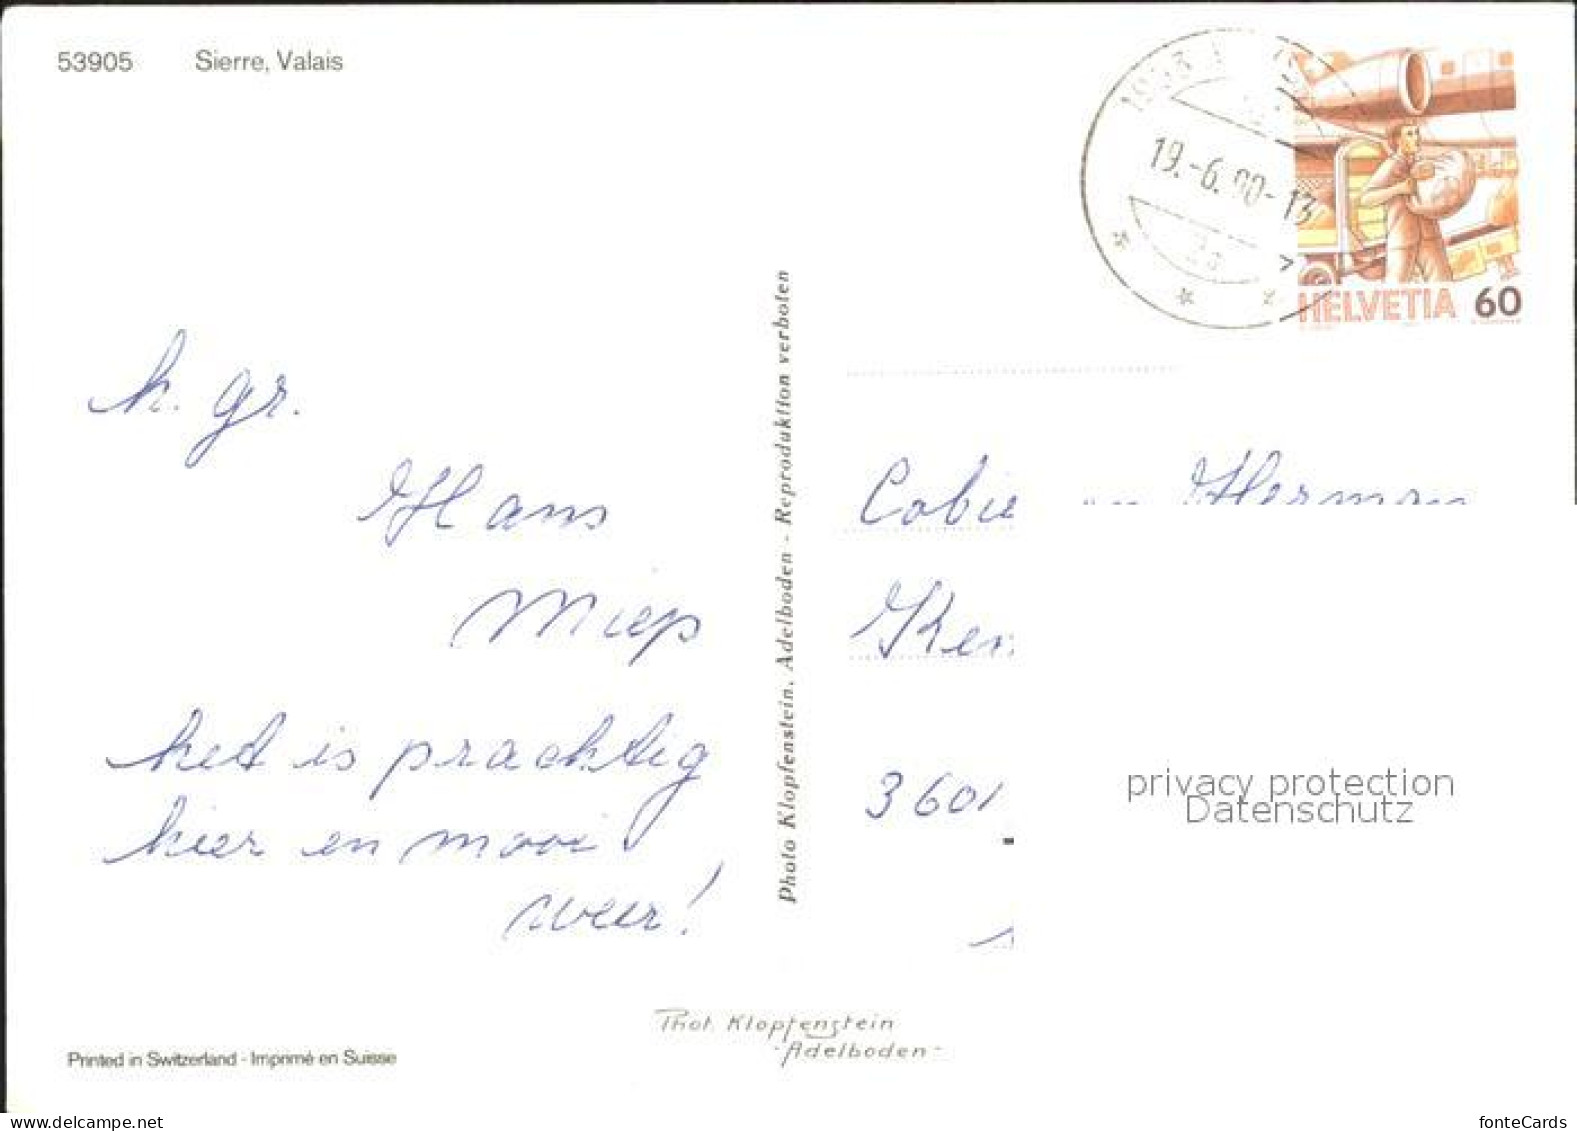 53905 Sierre, Valais
19.-6.90-13
HELVETIA 60
k. gr.
Hans
Miep
het is prachtig
hier en mooi
weer!
Photo Klopfenstein, Adelboden - Reproduktion verboten
Cobie en Herman
3601
privacy protection
Datenschutz
Phot. Klopfenstein
-Adelboden-
Printed in Switzerland - Imprimé en Suisse
www.delcampe.net
fonteCards